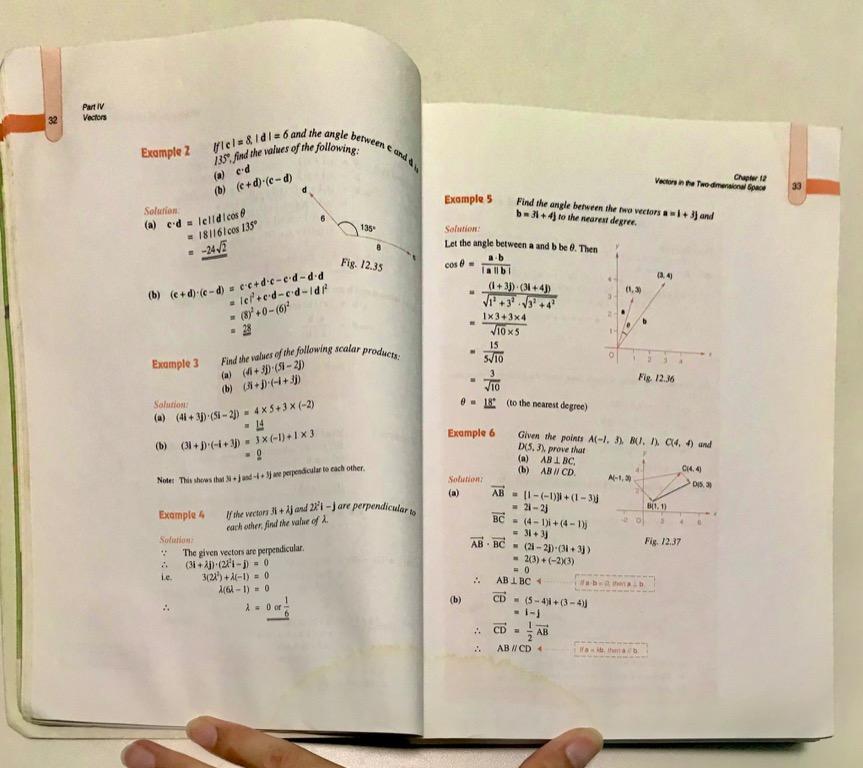 32
Part IV
Vectors
Example 2
If | c | = 8, | d | = 6 and the angle between c and d is
135°, find the values of the following:
(a) c·d
(b) (c+d)·(c−d)
Solution:
(a) c·d = | c | | d | cos θ
= | 8 | | 6 | cos 135°
= −24√2
d
6
135°
8
c
Fig. 12.35
(b) (c+d)·(c−d) = c·c + d·c − c·d − d·d
= | c |² + c·d − c·d − | d |²
= (8)² + 0 − (6)²
= 28
Example 3
Find the values of the following scalar products:
(a) (4i + 3j)·(5i − 2j)
(b) (3i + j)·(−i + 3j)
Solution:
(a) (4i + 3j)·(5i − 2j) = 4 × 5 + 3 × (−2)
= 14
(b) (3i + j)·(−i + 3j) = 3 × (−1) + 1 × 3
= 0
Note: This shows that 3i + j and −i + 3j are perpendicular to each other.
Example 4
If the vectors 3i + λj and 2λ²i − j are perpendicular to
each other, find the value of λ.
Solution:
∵ The given vectors are perpendicular.
∴ (3i + λj)·(2λ²i − j) = 0
i.e. 3(2λ²) + λ(−1) = 0
λ(6λ − 1) = 0
∴ λ = 0 or 1/6
Chapter 12
Vectors in the Two-dimensional Space
33
Example 5
Find the angle between the two vectors a = i + 3j and
b = 3i + 4j to the nearest degree.
Solution:
Let the angle between a and b be θ. Then
cos θ = a·b / | a || b |
= (i + 3j)·(3i + 4j) / √1² + 3² · √3² + 4²
= 1 × 3 + 3 × 4 / √10 × 5
= 15 / 5√10
= 3 / √10
θ = 18° (to the nearest degree)
y
(3, 4)
(1, 3)
4
3
2
1
a
b
θ
O 1 2 3 4 x
Fig. 12.36
Example 6
Given the points A(−1, 3), B(1, 1), C(4, 4) and
D(5, 3), prove that
(a) AB ⊥ BC,
(b) AB // CD.
Solution:
(a) AB = [1 − (−1)]i + (1 − 3)j
= 2i − 2j
BC = (4 − 1)i + (4 − 1)j
= 3i + 3j
AB · BC = (2i − 2j)·(3i + 3j)
= 2(3) + (−2)(3)
= 0
∴ AB ⊥ BC
If a·b = 0, then a ⊥ b.
y
4
A(−1, 3)
C(4, 4)
D(5, 3)
B(1, 1)
−2 O 4 6 x
Fig. 12.37
(b) CD = (5 − 4)i + (3 − 4)j
= i − j
∴ CD = 1/2 AB
∴ AB // CD
If a = kb, then a // b.